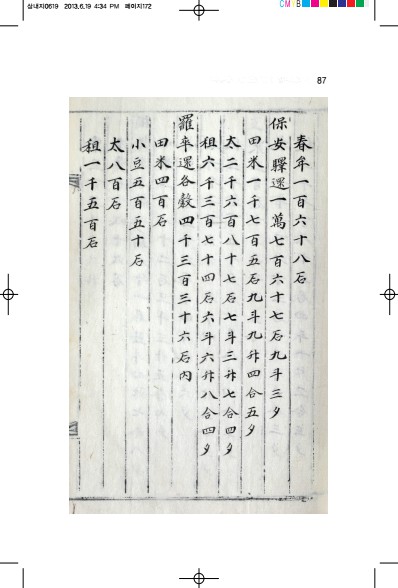 심내지0619 2013.6.19 4:34 PM 페이지172
CM
87
春牟一百六十八石
保安驛還一萬七百六十七石九斗三夕
田米一千七百五石九斗九升四合五夕
太二千六百八十七石七斗三升七合四夕
租六千三百七十四石六斗六升八合四夕
羅平還各穀四千三百三十六石內
田米四百石
小豆五百五十石
太八百石
租一千五百石